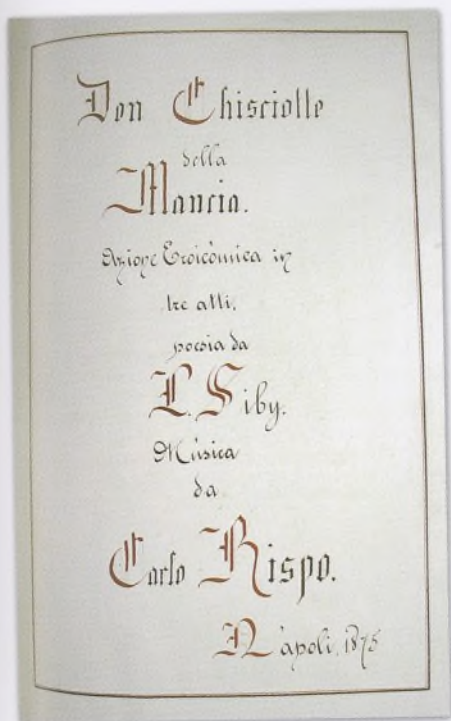 Don Chisciotte
della
Mancia.
Azione Eroicòmica in
tre atti,
poesia da
L. Siby.
Mùsica
da
Carlo Rispo.
Nàpoli, 1875